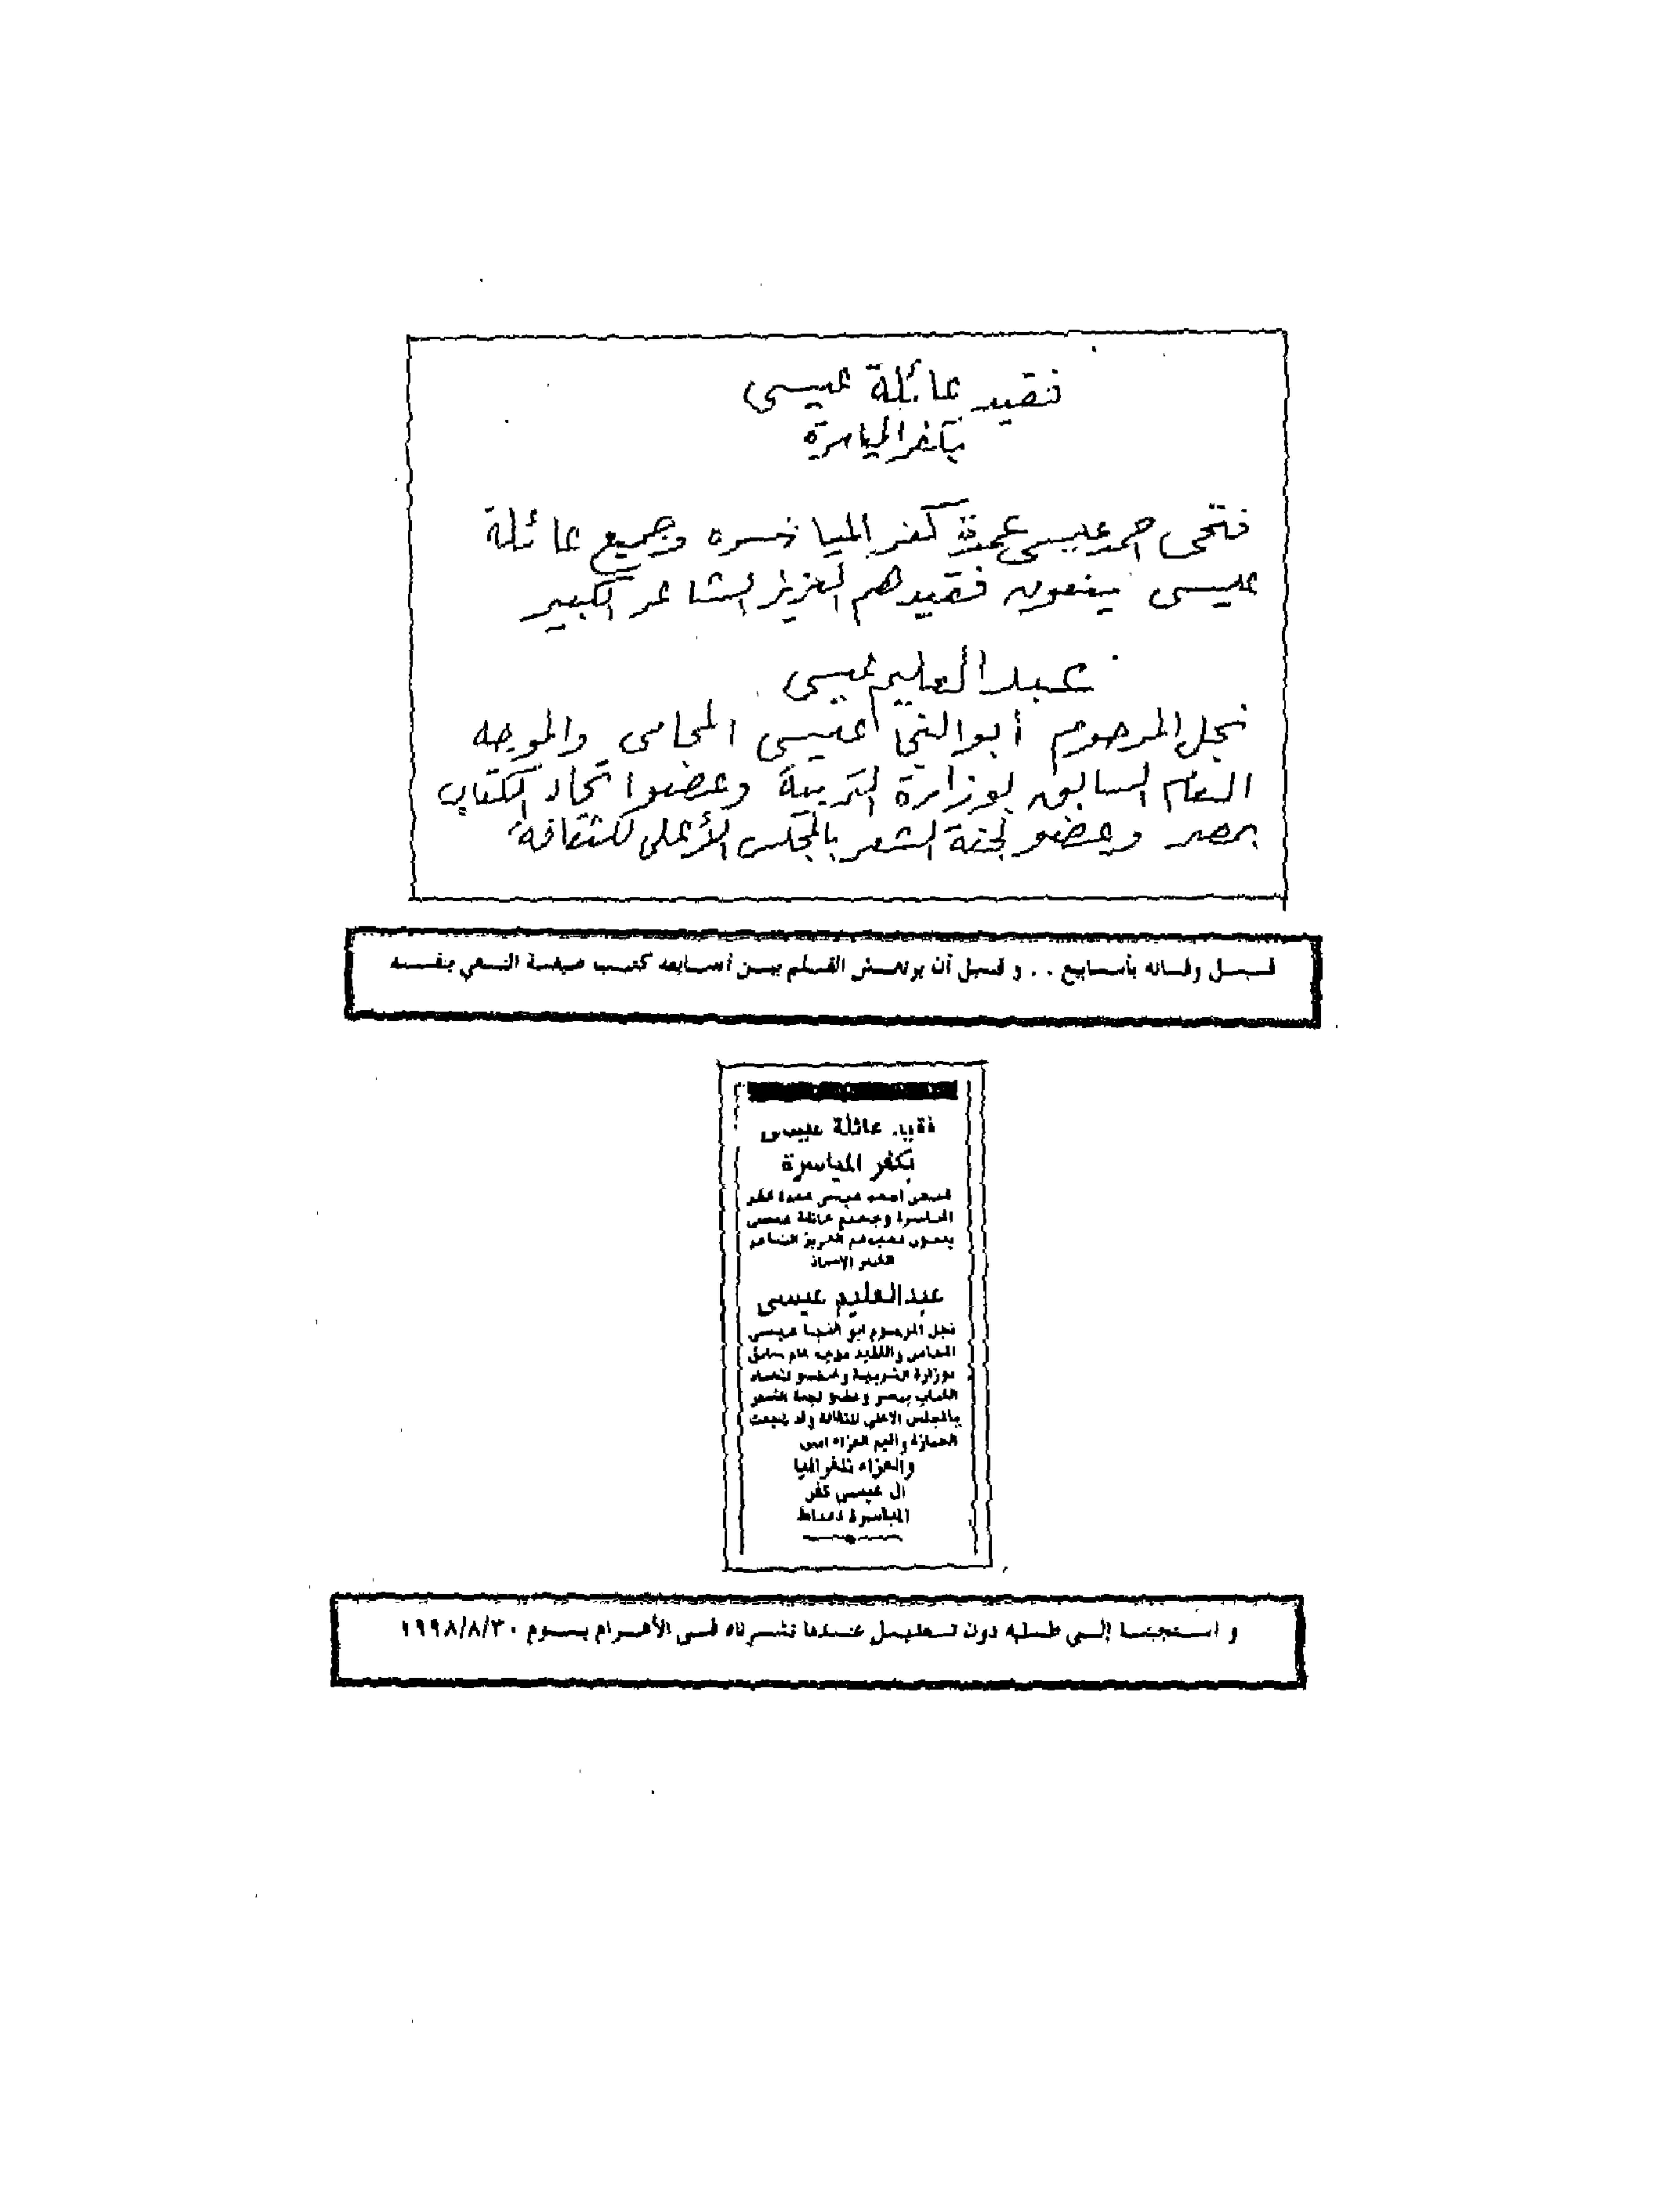 فقيد عائلة عيسى
بكفر المياسرة
فتحى احمد عيسى عمدة كفر المياسره وجميع عائلة
عيسى ينعون فقيدهم العزيز الشاعر الكبير
عبد العليم عيسى
نجل المرحوم أبو النجا عيسى المحامى والموجه
العام السابق بوزارة التربية وعضو اتحاد الكتاب
بمصر وعضو لجنة الشعر بالمجلس الأعلى للثقافة
قبل وفاته بأسابيع .. و قبل أن يرتعش القلم بين أصابعه كتب صيغة النعي بنفسه
فقيد عائلة عيسى
بكفر المياسرة
فتحى احمد عيسى عمدة كفر
المياسرة وجميع عائلة عيسى
ينعون فقيدهم العزيز الشاعر
الكبير الاستاذ
عبدالعليم عيسى
نجل المرحوم ابو النجا عيسى
المحامى والفقيد موجه عام سابق
بوزارة التربية وعضو اتحاد
الكتاب بمصر وعضو لجنة الشعر
بالمجلس الاعلى للثقافة وقد شيعت
الجنازة واقيم العزاء امس
والعزاء تلغرافيا
ال عيسى كفر
المياسرة دمياط
و استجبنا إلى طلبه دون تعليل عندما نشرناه فى الأهرام يوم ١٩٩٨/٨/٣٠